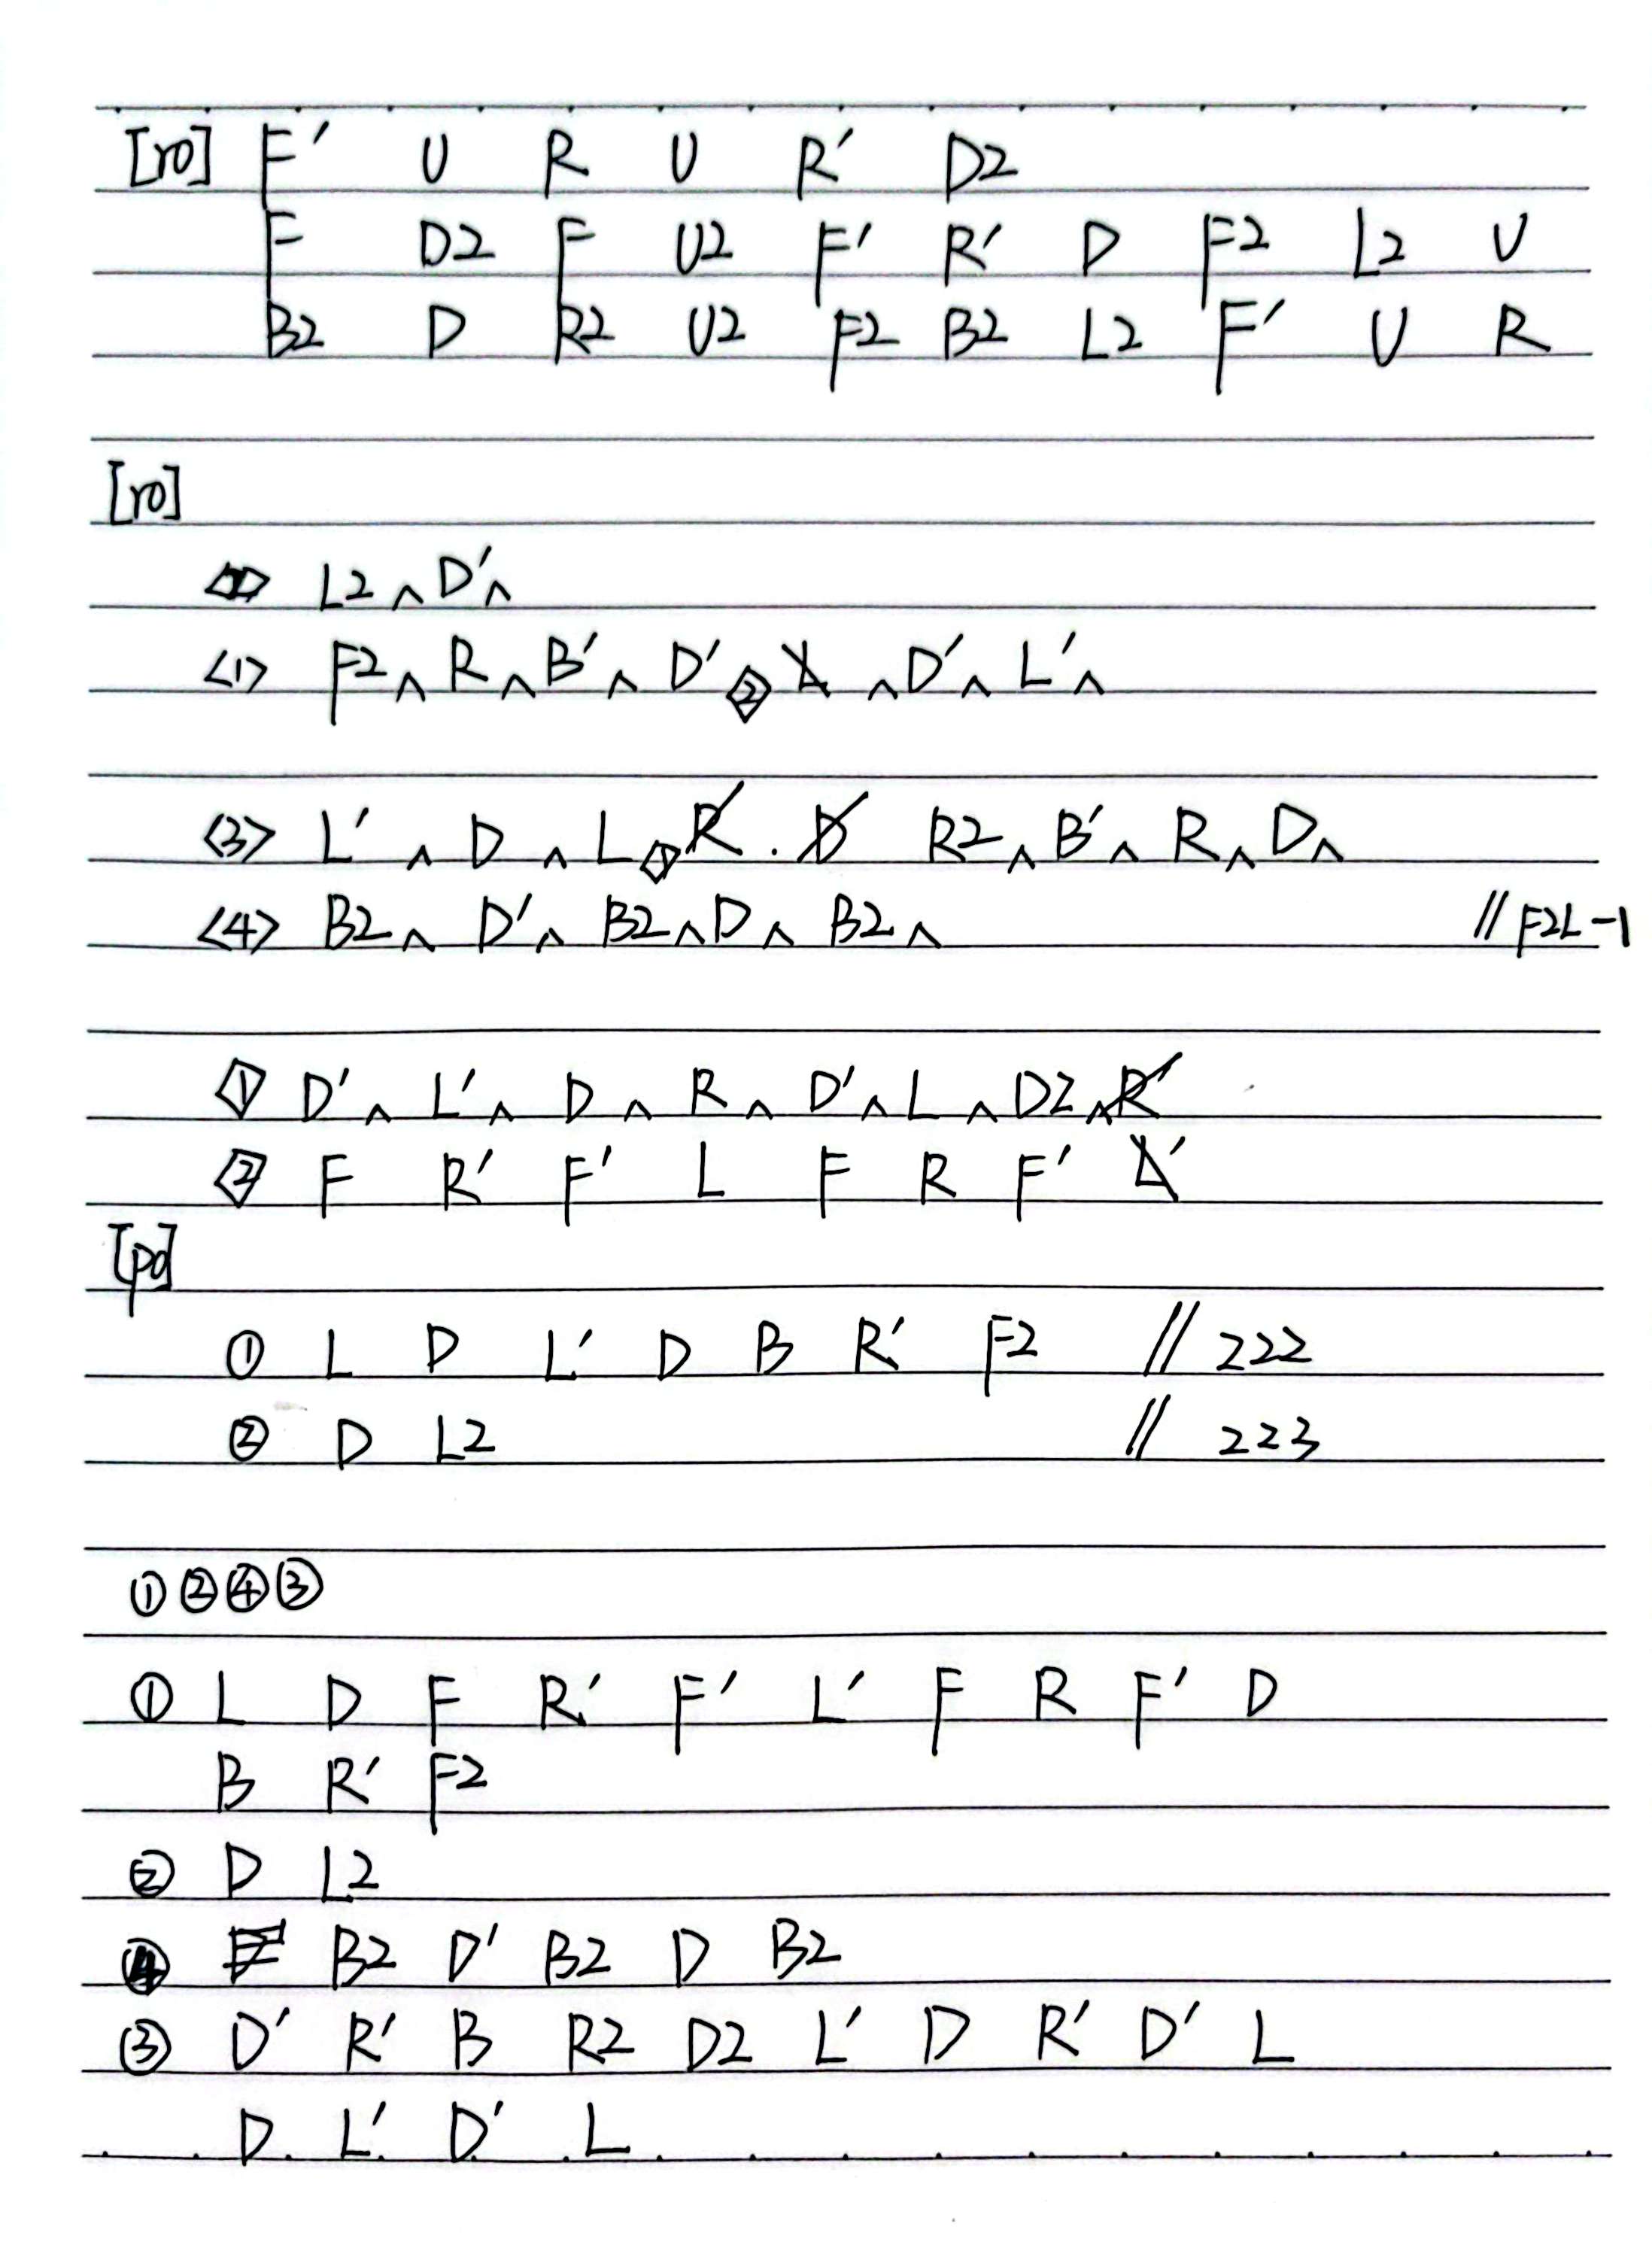 [ro] F' U R U R' D2
F D2 F U2 F' R' D F2 L2 U
B2 D R2 U2 F2 B2 L2 F' U R
[ro]
L2 ^ D' ^
<1> F2 ^ R ^ B' ^ D' ◇2 L ^ D' ^ L' ^
<3> L' ^ D ^ L ◇1 R . D R2 ^ B' ^ R ^ D ^
<4> B2 ^ D' ^ B2 ^ D ^ B2 ^ // F2L-1
◇1 D' ^ L' ^ D ^ R ^ D' ^ L ^ D2 ^ R'
◇2 F R' F' L F R F' L'
[po]
① L D L' D B R' F2 // 222
② D L2 // 223
①②④③
① L D F R' F' L' F R F' D
B R' F2
② D L2
④ B2 D' B2 D B2
③ D' R' B R2 D2 L' D R' D' L
D L' D' L